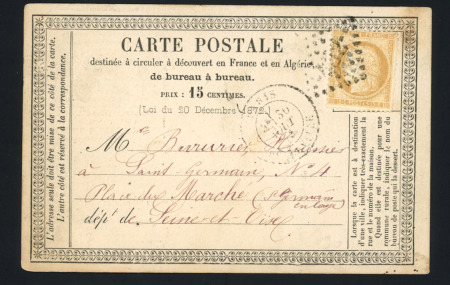 CARTE POSTALE
destinée à circuler à découvert en France et en Algérie,
de bureau à bureau.
PRIX : 15 CENTIMES.
[Loi du 20 Décembre 1872.]
L'adresse seule doit être mise de ce côté de la carte.
L'autre côté est réservé à la correspondance.
M
à Saint-Germain, No 4
Place du Marché (St Germain
en Laye)
dépt de Seine-et-Oise
Lorsque la carte est à destination
d'une ville, indiquer très-exactement la
rue et le numéro de la maison.
Quand elle est destinée pour une
commune rurale, indiquer le nom du
bureau de poste qui la dessert.